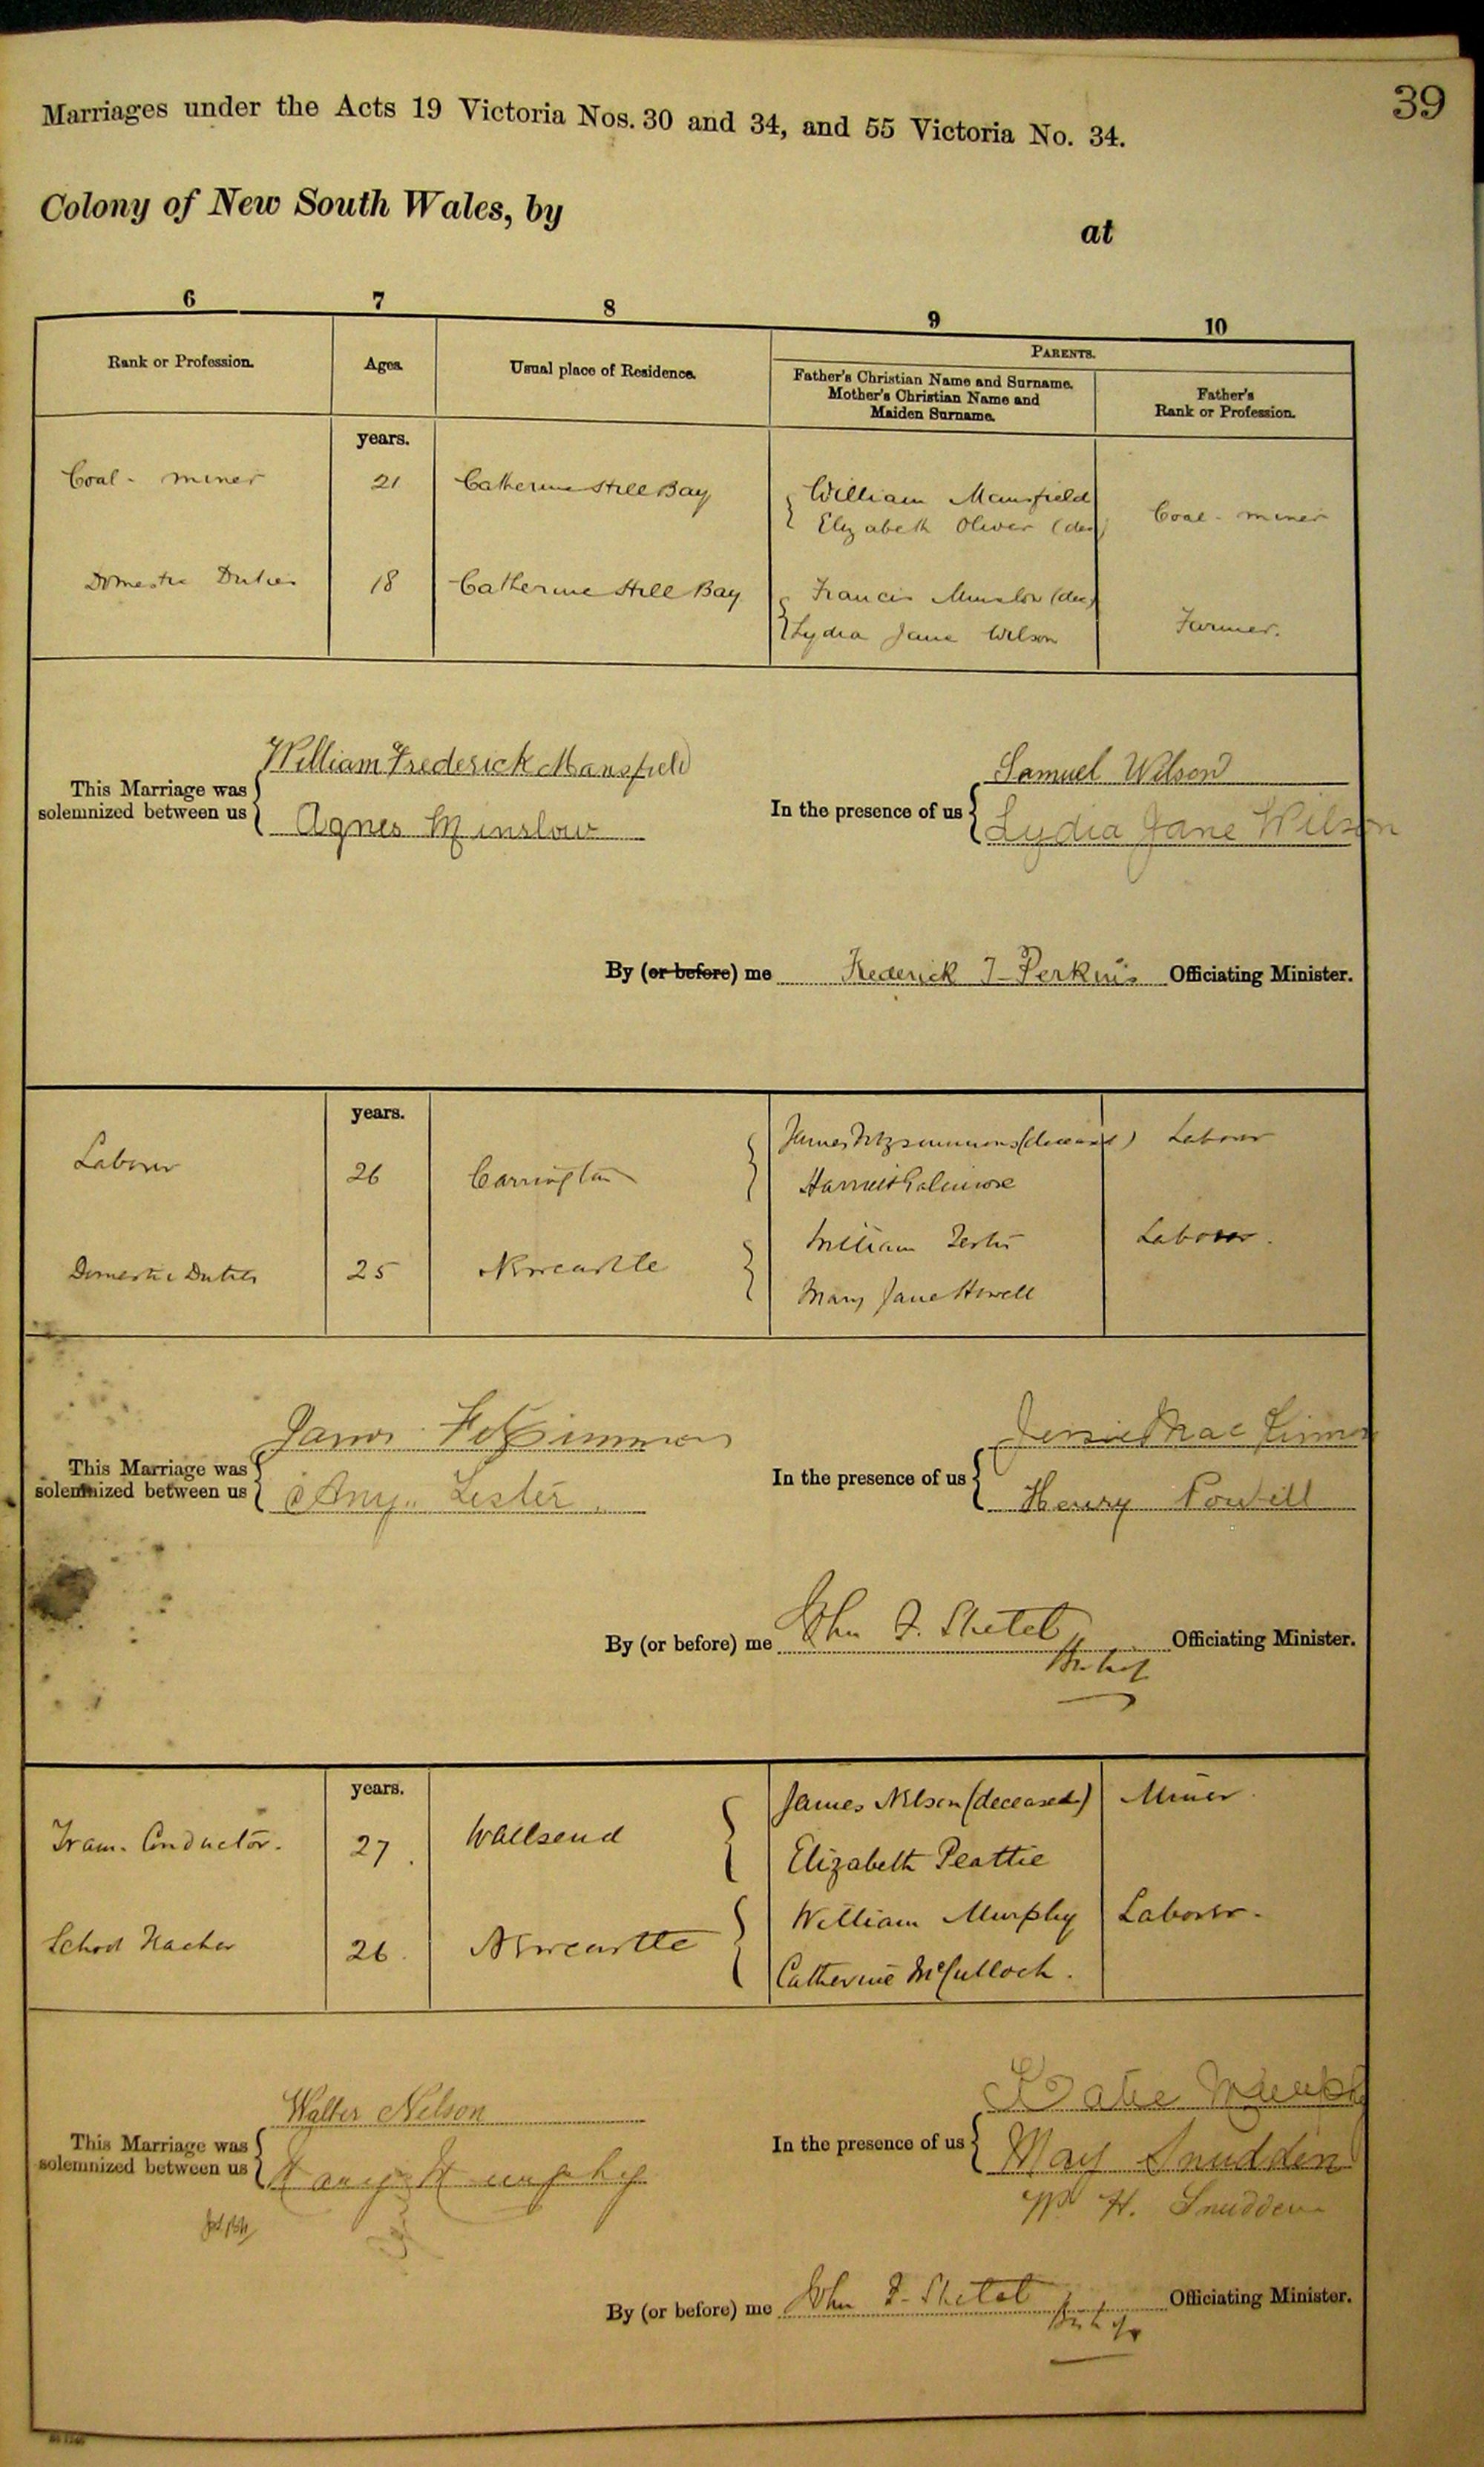 39
Marriages under the Acts 19 Victoria Nos. 30 and 34, and 55 Victoria No. 34.
Colony of New South Wales, by
at
6 7 8 9 10
Rank or Profession. Ages. Usual place of Residence. PARENTS.
Father's Christian Name and Surname. Mother's Christian Name and Maiden Surname. Father's Rank or Profession.
years.
Coal-miner 21 Catherine Hill Bay William Mansfield Coal-miner
Elizabeth Oliver (dec)
Domestic Duties 18 Catherine Hill Bay Francis Minslow (dec) Farmer.
Lydia Jane Wilson
This Marriage was solemnized between us
William Frederick Mansfield
Agnes Minslow
In the presence of us
Samuel Wilson
Lydia Jane Wilson
By (or before) me Frederick T Perkins Officiating Minister.
years.
Laborer 26 Carrington James Fitzsimmons (deceased) Laborer
Harriet
Domestic Duties 25 Newcastle William Lester Laborer.
Mary Jane Howell
This Marriage was solemnized between us
James Fitzsimmons
Amy Lester
In the presence of us
Jessie
Henry Powell
By (or before) me John F. Officiating Minister.
years.
Tram-Conductor. 27. Wallsend James Nelson (deceased) Miner
Elizabeth Peattie
School Teacher 26. Newcastle William Murphy Laborer.
Catherine McCulloch.
This Marriage was solemnized between us
Walter Nelson
Murphy
In the presence of us
Katie Murphy
May Snudden
W H. Snudden
By (or before) me John F. Officiating Minister.